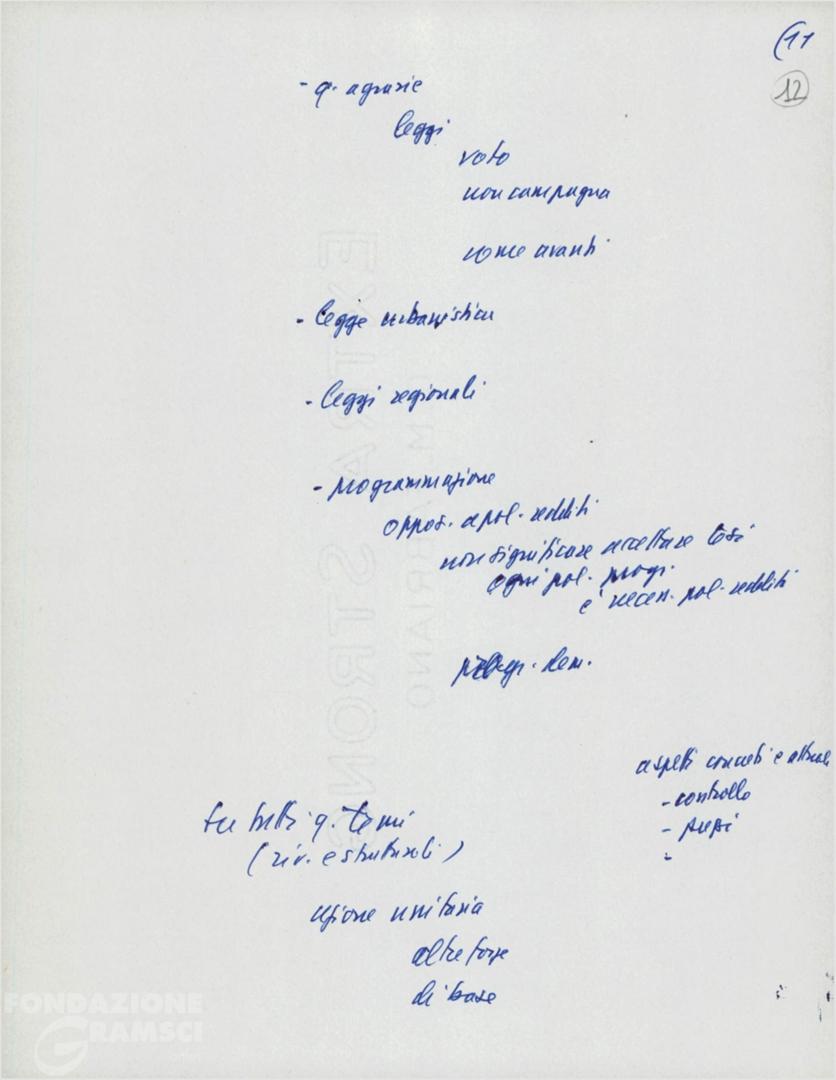 (11
12
- q. agrarie
leggi
voto
non campagna
come avanti
- legge urbanistica
- leggi regionali
- programmazione
oppos. a pol. redditi
non significare accettare tesi
ogni pol. progr.
è necess. pol. redditi
progr. dem.
aspetti concreti e attuali
- controllo
- prezzi
-
su tutti q. temi
(riv. e strutturali)
azione unitaria
altre forze
di base
EXTRA STRONG
FABRIANO
FONDAZIONE
GRAMSCI